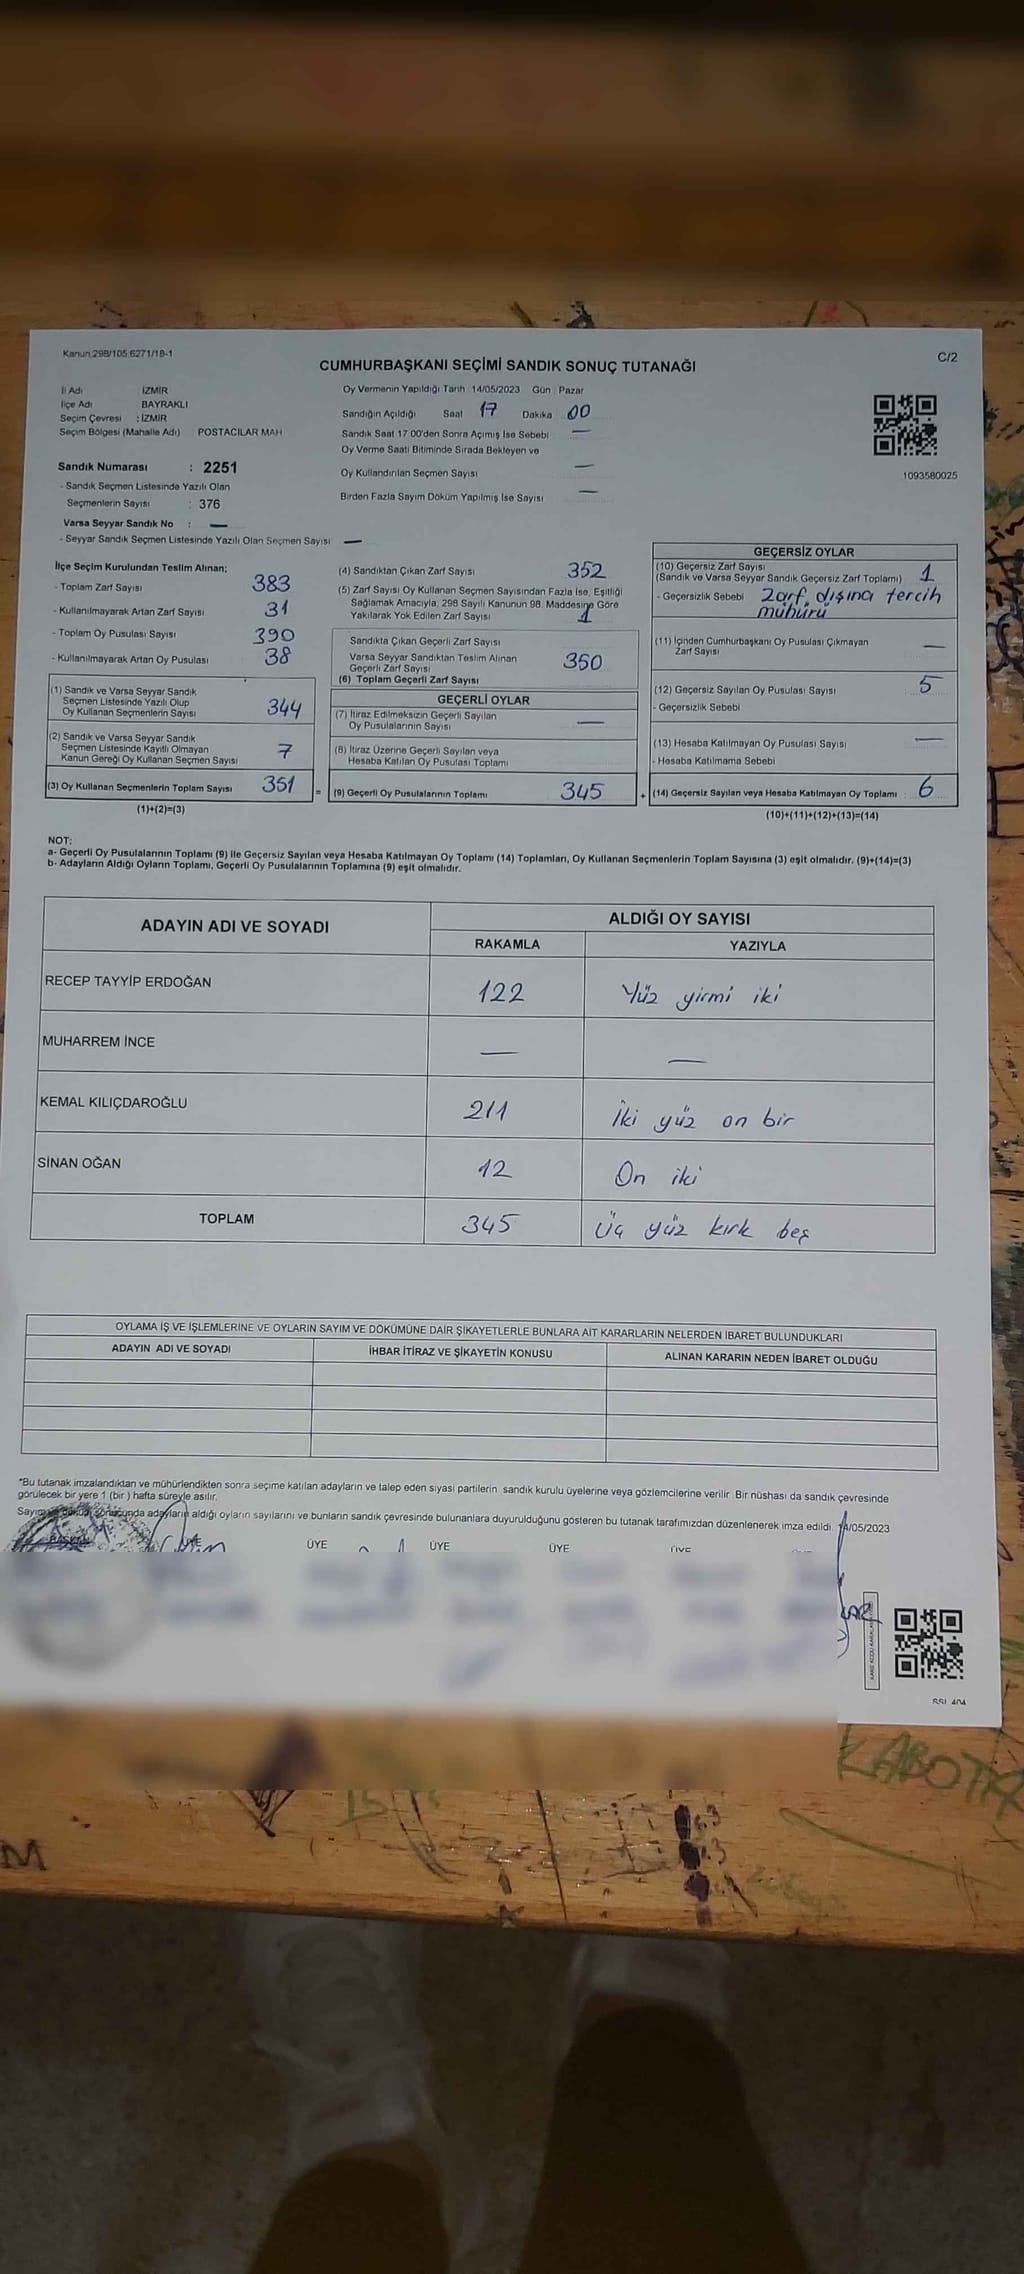 Kanun:298/105 6271/18-1
C/2
CUMHURBAŞKANI SEÇİMİ SANDIK SONUÇ TUTANAĞI
İl Adı : İZMİR
İlçe Adı : BAYRAKLI
Seçim Çevresi : İZMİR
Seçim Bölgesi (Mahalle Adı) POSTACILAR MAH
Sandık Numarası : 2251
- Sandık Seçmen Listesinde Yazılı Olan
Seçmenlerin Sayısı : 376
Varsa Seyyar Sandık No : —
- Seyyar Sandık Seçmen Listesinde Yazılı Olan Seçmen Sayısı —
Oy Vermenin Yapıldığı Tarih 14/05/2023 Gün : Pazar
Sandığın Açıldığı Saat 17 Dakika 00
Sandık Saat 17:00'den Sonra Açımış İse Sebebi —
Oy Verme Saati Bitiminde Sırada Bekleyen ve
Oy Kullandırılan Seçmen Sayısı —
Birden Fazla Sayım Döküm Yapılmış İse Sayısı —
1093580025
İlçe Seçim Kurulundan Teslim Alınan;
- Toplam Zarf Sayısı 383
- Kullanılmayarak Artan Zarf Sayısı 31
- Toplam Oy Pusulası Sayısı 390
- Kullanılmayarak Artan Oy Pusulası 38
(1) Sandık ve Varsa Seyyar Sandık
Seçmen Listesinde Yazılı Olup
Oy Kullanan Seçmenlerin Sayısı 344
(2) Sandık ve Varsa Seyyar Sandık
Seçmen Listesinde Kayıtlı Olmayan
Kanun Gereği Oy Kullanan Seçmen Sayısı 7
(3) Oy Kullanan Seçmenlerin Toplam Sayısı 351
(1)+(2)=(3)
(4) Sandıktan Çıkan Zarf Sayısı 352
(5) Zarf Sayısı Oy Kullanan Seçmen Sayısından Fazla İse, Eşitliği
Sağlamak Amacıyla, 298 Sayılı Kanunun 98. Maddesine Göre
Yakılarak Yok Edilen Zarf Sayısı 1
Sandıkta Çıkan Geçerli Zarf Sayısı
Varsa Seyyar Sandıktan Teslim Alınan
Geçerli Zarf Sayısı 350
(6) Toplam Geçerli Zarf Sayısı
GEÇERLİ OYLAR
(7) İtiraz Edilmeksizin Geçerli Sayılan
Oy Pusulalarının Sayısı —
(8) İtiraz Üzerine Geçerli Sayılan veya
Hesaba Katılan Oy Pusulası Toplamı
= (9) Geçerli Oy Pusulalarının Toplamı 345
GEÇERSİZ OYLAR
(10) Geçersiz Zarf Sayısı
(Sandık ve Varsa Seyyar Sandık Geçersiz Zarf Toplamı) 1
- Geçersizlik Sebebi Zarf dışına tercih
mühürü
(11) İçinden Cumhurbaşkanı Oy Pusulası Çıkmayan
Zarf Sayısı —
(12) Geçersiz Sayılan Oy Pusulası Sayısı 5
- Geçersizlik Sebebi
(13) Hesaba Katılmayan Oy Pusulası Sayısı —
- Hesaba Katılmama Sebebi
+ (14) Geçersiz Sayılan veya Hesaba Katılmayan Oy Toplamı : 6
(10)+(11)+(12)+(13)=(14)
NOT:
a- Geçerli Oy Pusulalarının Toplamı (9) ile Geçersiz Sayılan veya Hesaba Katılmayan Oy Toplamı (14) Toplamları, Oy Kullanan Seçmenlerin Toplam Sayısına (3) eşit olmalıdır. (9)+(14)=(3)
b- Adayların Aldığı Oyların Toplamı, Geçerli Oy Pusulalarının Toplamına (9) eşit olmalıdır.
ADAYIN ADI VE SOYADI ALDIĞI OY SAYISI
RAKAMLA YAZIYLA
RECEP TAYYİP ERDOĞAN 122 Yüz yirmi iki
MUHARREM İNCE — —
KEMAL KILIÇDAROĞLU 211 İki yüz on bir
SİNAN OĞAN 12 On iki
TOPLAM 345 Üç yüz kırk beş
OYLAMA İŞ VE İŞLEMLERİNE VE OYLARIN SAYIM VE DÖKÜMÜNE DAİR ŞİKAYETLERLE BUNLARA AİT KARARLARIN NELERDEN İBARET BULUNDUKLARI
ADAYIN ADI VE SOYADI İHBAR İTİRAZ VE ŞİKAYETİN KONUSU ALINAN KARARIN NEDEN İBARET OLDUĞU
*Bu tutanak imzalandıktan ve mühürlendikten sonra seçime katılan adayların ve talep eden siyasi partilerin sandık kurulu üyelerine veya gözlemcilerine verilir. Bir nüshası da sandık çevresinde
görülecek bir yere 1 (bir ) hafta süreyle asılır.
sonucunda adayların aldığı oyların sayılarını ve bunların sandık çevresinde bulunanlara duyurulduğunu gösteren bu tutanak tarafımızdan düzenlenerek imza edildi. 14/05/2023
BAŞKAN ÜYE ÜYE ÜYE ÜYE ÜYE
SSL 404
KABOTA
M